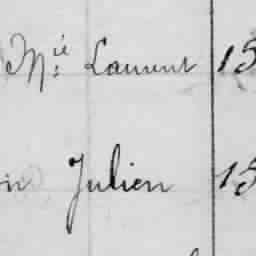 Mié Laurent 15
on Julien 15